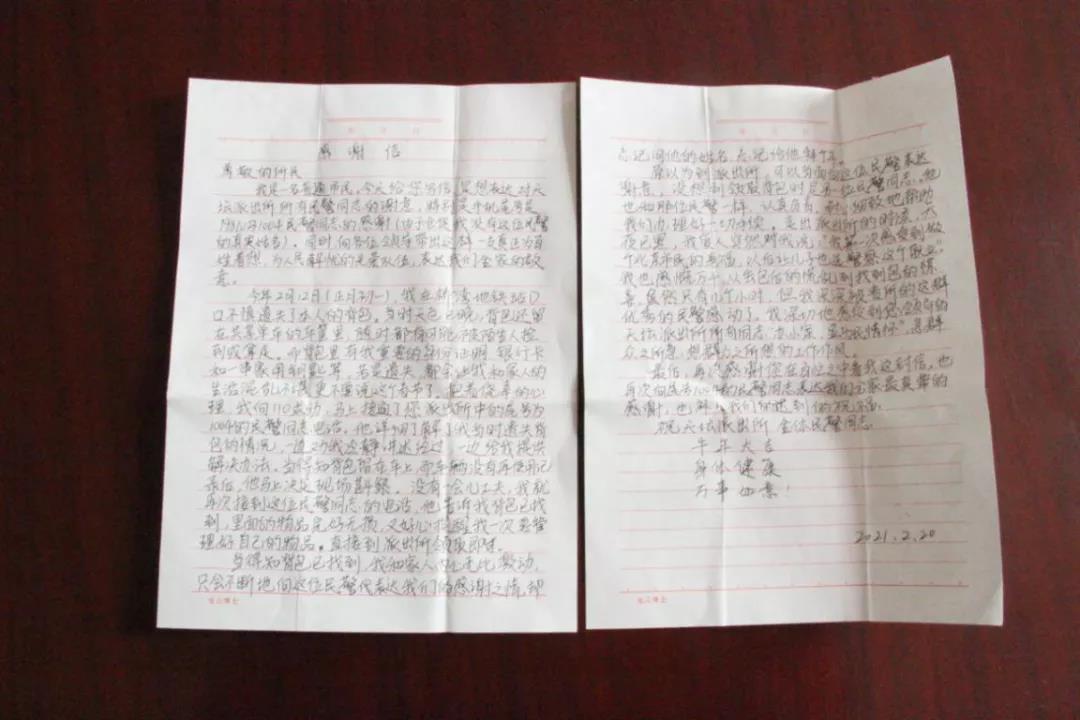 感谢信
尊敬的所长
我是一名普通市民,今天给您写信,是想表达对天
坛派出所所有民警同志的谢意,特别是手机尾号是
1004民警同志的感谢(由于仓促我没有这位民警
的真实姓名)。同时,向各位领导带出这样一支真正为百
姓着想,为人民解忧的先要队伍,表达我们全家的敬
意。
今年2月12日(正月初一),我在桥湾地铁站D
口不慎遗失了本人的背包。当时天色已晚,背包还留
在共享单车的车筐里,随时都有可能被陌生人捡
到或拿走。而背包里有我重要的身份证明、银行卡
和一串家用钥匙等,若是遗失,都会让我和家人的
生活混乱不堪,更不要说这个春节了。抱着侥幸的心
理,我向110求助,马上接通了您派出所中的尾号为
1004的民警同志电话。他详细了解了我当时遗失背
包的情况,一边劝我冷静讲述经过,一边给我提供
解决办法。当得知背包留在车上,而车辆没有再使用记
录后,他马上决定现场勘察。没有一会儿工夫,我就
再次接到这位民警同志的电话,他告诉我背包已找
到,里面的物品完好无损,又好心提醒我一次要整
理好自己的物品。直接到派出所领取即可。
当得知背包已找到,我和家人内心无比激动,
只会不断地向这位民警代表达我们的感谢之情,却
忘记问他的姓名,忘记给他拜个年。
原以为到派出所,可以当面给这位民警表达
谢意,没想到领取背包时是另一位民警同志。他
也和那位民警一样,认真负责,耐心细致地帮助
我们办理好一切手续。走出派出所的时候,天
夜已黑,我爱人突然对我说:"我第一次感受到做
个北京市民的幸福,以后让儿子也选警察这个职业"
我也感慨万千,从丢包后的慌乱到找到包的惊
喜,虽然只有几个小时,但我深深被贵所的这群
优秀的民警感动了。我深切地感受到您领导的
天坛派出所所有同志"办小案,显民情怀",急群
众之所急,想群众之所想的工作作风。
最后,再次感谢您在百忙之中看我这封信,也
再次向尾号1004的民警同志表达我们全家最真挚的
感谢,也拜上我们的迟到的祝福:
祝天坛派出所全体民警同志
牛年大吉
身体健康
万事如意!
2021.2.20